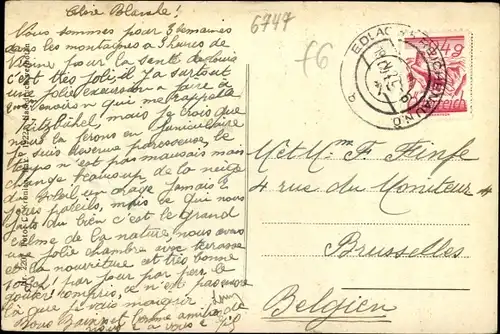 Chère Blanche!
Vous sommes pour 3 semaines
dans les montagnes à 3 heures de
Vienne pour la santé de Louis
c'est très joli, il y a surtout
une jolie excursion a faire
environs
Kitzbühel, mais je crois que
nous la ferons en funiculaire
je suis devenue paresseuse, le
temps n'est pas mauvais mais
change beaucoup de la neige
du soleil un orage jamais 2
jours pareils, mais ce qui nous
fais du bien c'est le grand
calme de la nature, nous avons
une jolie chambre avec terasse
et la nourriture est très bonne
par jour par pers. le
goûter compris, ce n'est pas encore
là que je vais maigrir
Bons Baisers
à vous
6747
f6
EDLACH
Met Mme F. Finfe
4 rue du Moniteur 4
Brusselles
Belgien